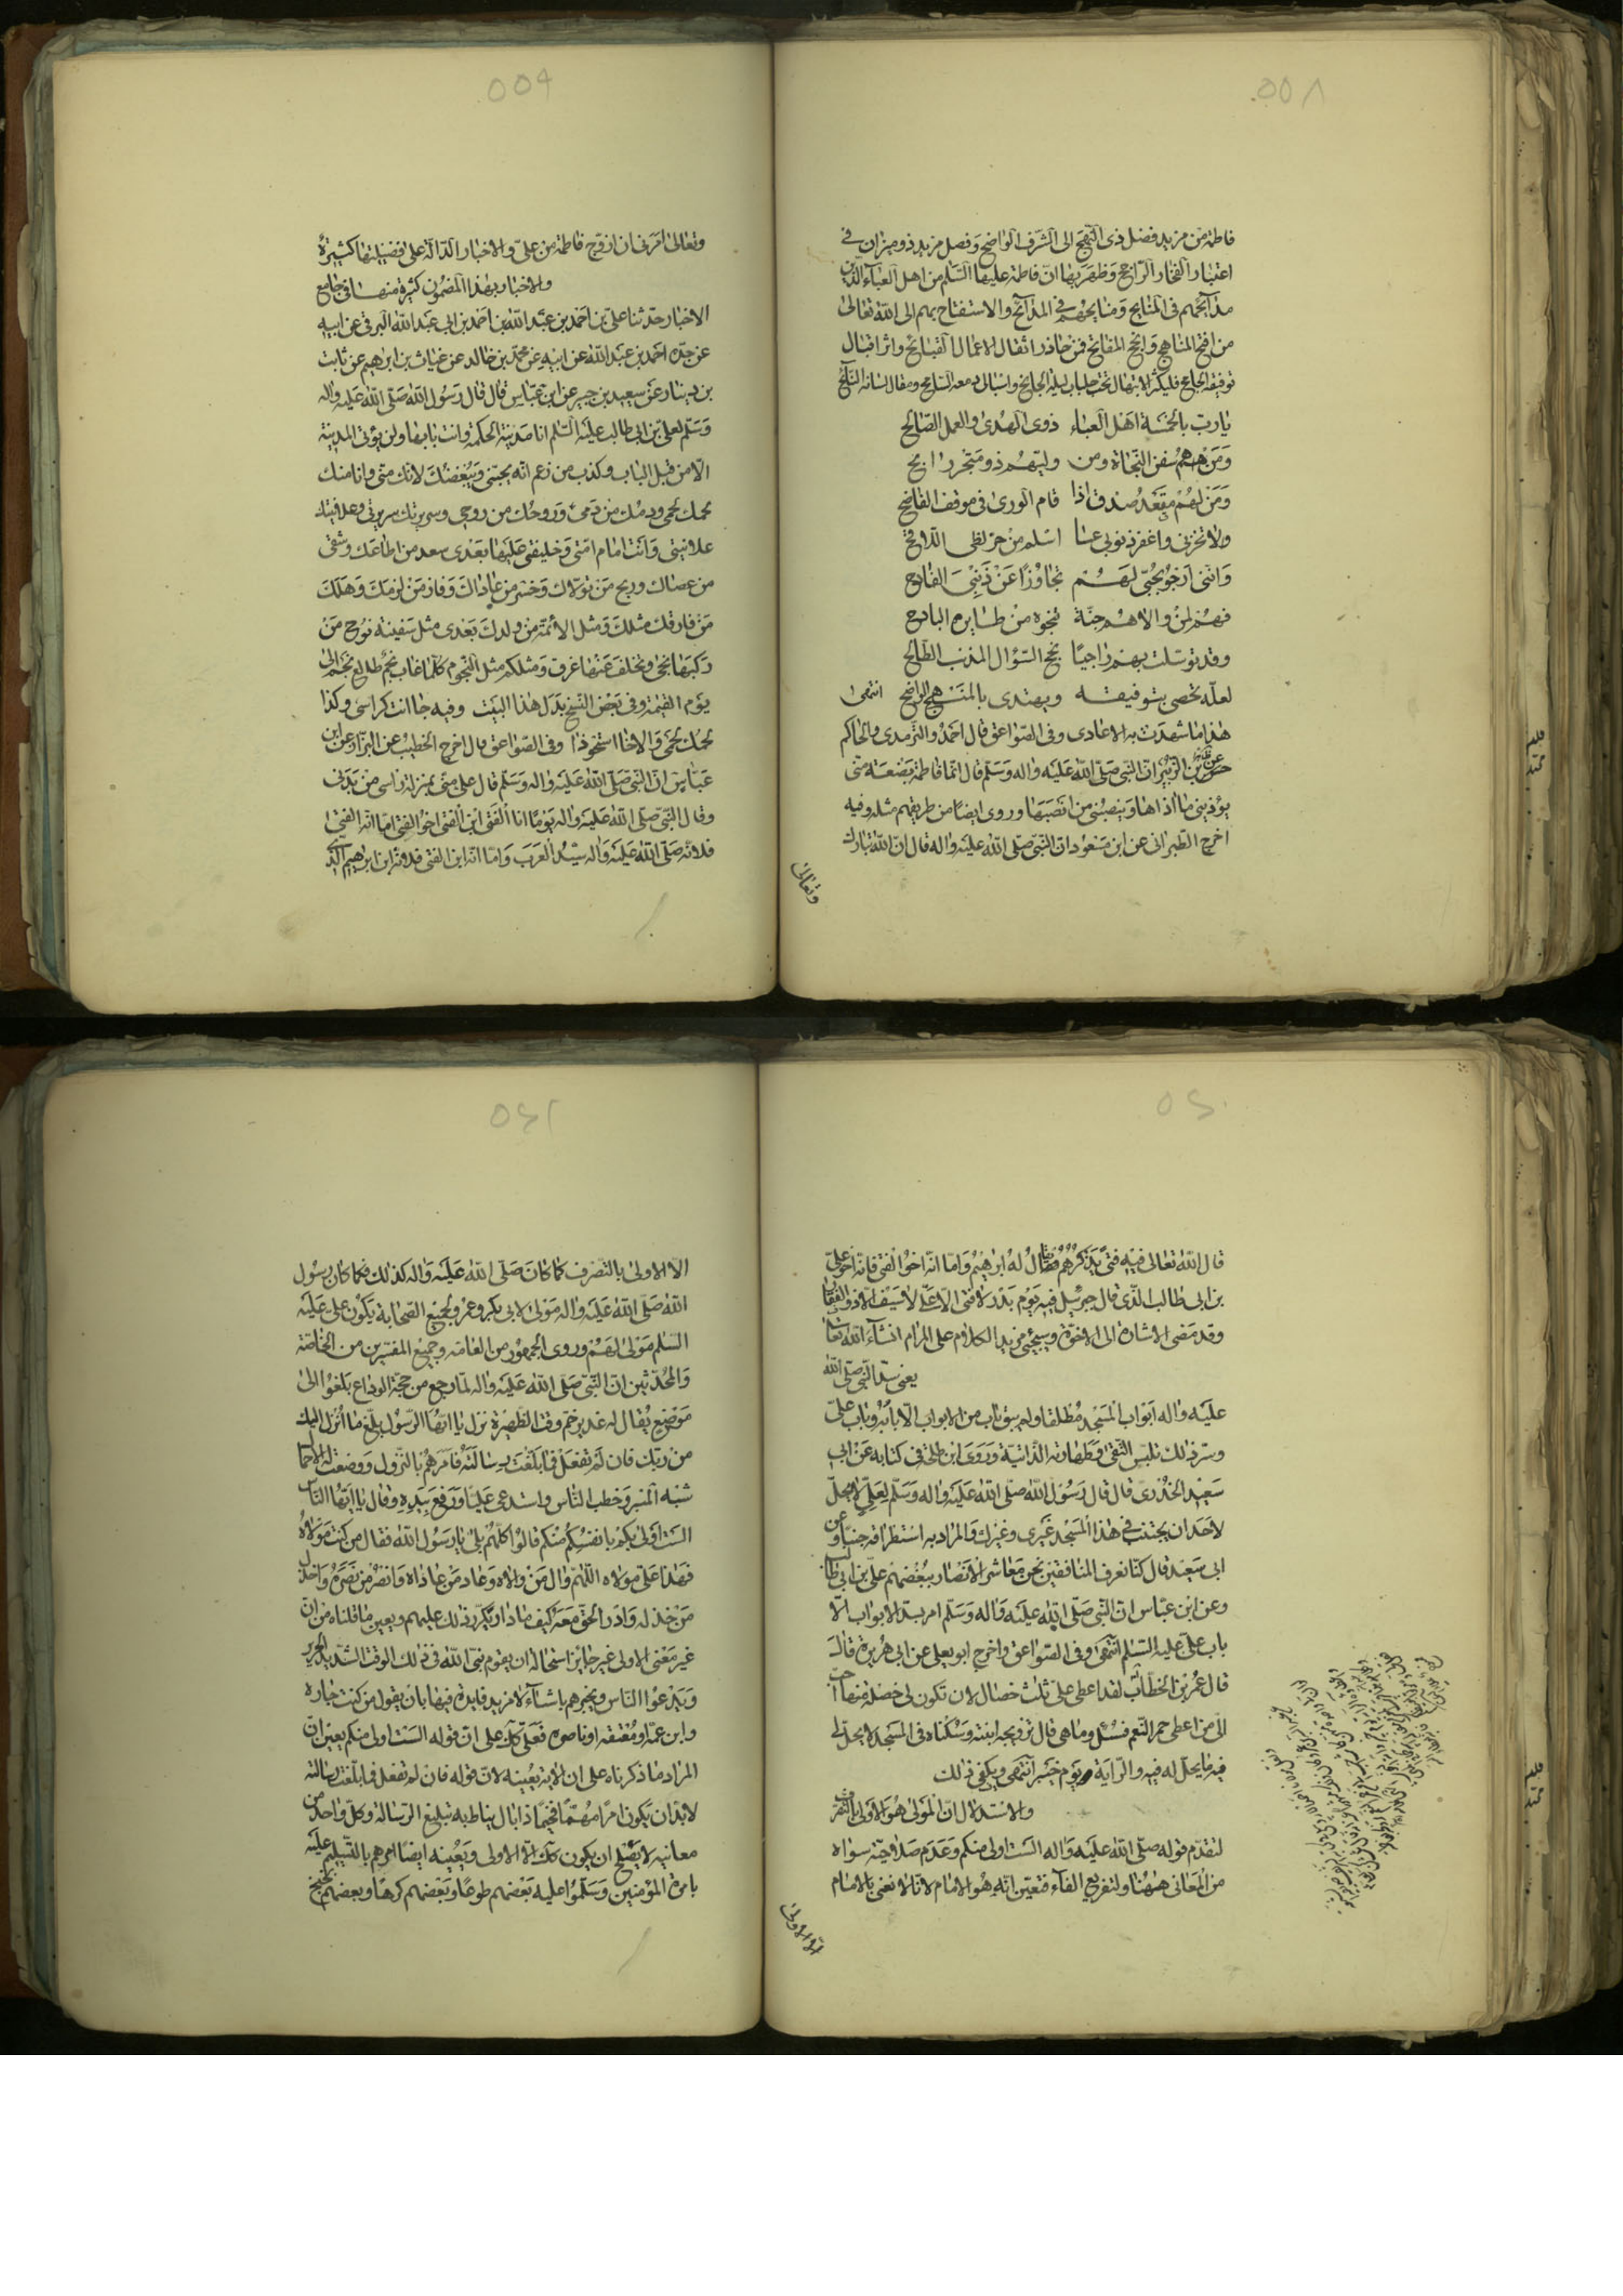 ٥٥٨
فاطمة من مزيد فضل ذى النهج الى الشرف الواضح وفصل مزيد ذو ميزان فى
اعتبار الفخار الراجح وظهر بها ان فاطمة عليها السلم من اهل العباء الذين
مدائحهم فى المنايح ومنايحهم فى المدائح والاستفتاح بهم الى الله تعالى
من افتح المناهج وانجح المفاتح فمن حاذر اثقال الاعمال القبايح واثر اقبال
توفيقه الجامح فليكثر الابتهال تحت جلباب ليله الجانح وانسبال دمعه السارح ومقال لسانه النايح
يا رب بالخمسة اهل العباء ذوى الهدى والعمل الصالح
ومن هم سفن النجاة ومن وليهم ذو متجر رابح
ومن لهم مقعد صدق اذا قام الورى فى موقف الفاضح
ولا تخزنى واغفر ذنوبى عسا اسلم من حر لظى اللافح
واننى ارجو بحبى لهم تجاوزا عن ذنبى الفادح
فهم لمن والاهم جنة تنجوه من طايره البارح
وقد توسلت بهم راجيا نجح السؤال المذنب الطالح
لعله يخصنى بتوفيقه ويهتدى بالمنهج الواضح انتهى
هذا ما شهدت به الاعادى وفى الصواعق قال اخرج احمد والترمذى والحاكم
عن ابن الزبير ان النبى صلى الله عليه واله وسلم قال انما فاطمة بضعة منى
يؤذينى ما اذاها وينصبنى من انصبها وروى ايضا من طريقهم مثله وفيه
اخرج الطبرانى عن ابن مسعود ان النبى صلى الله عليه واله قال ان الله تبارك
وتعالى
٥٥٩
وتعالى امرنى ان ازوج فاطمة من على والاخبار الدالة على فضيلتها كثيرة
والاخبار بهذا المضمون كثيرة منها فى جامع
الاخبار حدثنا على بن احمد بن عبد الله بن احمد بن ابى عبد الله البرقى عن ابيه
عن جده احمد بن عبد الله عن ابيه عن محمد بن خالد عن غياث بن ابراهيم عن ثابت
بن دينار عن سعيد بن جبير عن ابن عباس قال قال رسول الله صلى الله عليه واله
وسلم لعلى بن ابى طالب عليه السلم انا مدينة الحكمة وانت بابها ولن يؤتى المدينة
الا من قبل الباب وكذب من زعم انه يحبنى ويبغضك لانك منى وانا منك
لحمك لحمى ودمك من دمى وروحك من روحى وسريرتك سريرتى وعلانيتك
علانيتى وانت امام امتى وخليفتى عليها بعدى سعد من اطاعك وشقى
من عصاك وربح من تولاك وخسر من عاداك وفاز من لزمك وهلك
من فارقك مثلك ومثل الائمة من ولدك بعدى مثل سفينة نوح من
ركبها نجى وتخلف عنها غرق ومثلكم مثل النجوم كلما غاب نجم طلع نجم الى
يوم القيمة وفى بعض النسخ بدل هذا البيت وفيه جا انت كراسى وكذا
لحمك لحمى والاخا استحوذا وفى الصواعق قال اخرج الخطيب عن البزاز عن ابن
عباس ان النبى صلى الله عليه واله وسلم قال على منى بمنزلة راسى من بدنى
وقال النبى صلى الله عليه واله يوما انا الفتى ابن الفتى اخو الفتى اما انه الفتى
فلانه صلى الله عليه واله سيد العرب واما انه ابن الفتى فلانه ابن ابرهيم الذى
٥٦٠
قال الله تعالى فيه فتى يذكرهم يقال له ابرهيم واما انه اخو الفتى فانه اخو على
بن ابى طالب الذى قال جبرئيل فيه يوم بدر لا فتى الا على لا سيف الا ذو الفقار
وقد مضى الاشارة الى الاخوة وسيجئ مزيد الكلام على المرام انشاء الله تعالى
يعنى سد النبى صلى الله
عليه واله ابواب المسجد مطلقا ولم يبق باب من الابواب الا بابه وباب على
وسر ذلك تلبس التقى وطهارته الذاتية وروى ابن طلحة فى كتابه عن ابى
سعيد الخدرى قال قال رسول الله صلى الله عليه واله وسلم لعلى لا يحل
لاحد ان يجتنب فى هذا المسجد غيرى وغيرك والمراد به استطراقه جنبا وعن
ابى سعيد قال كنا نعرف المنافقين نحن معاشر الانصار ببغضهم على بن ابى طالب
وعن ابن عباس ان النبى صلى الله عليه واله وسلم امر بسد الابواب الا
باب على عليه السلم انتهى وفى الصواعق واخرج ابو يعلى عن ابى هريرة قال
قال عمر بن الخطاب لقد اعطى على ثلث خصال لان تكون لى خصلة منها احب
الى من اعطى حمر النعم فسئل وما هى قال تزويجه ابنته وسكناه فى المسجد لا يحل لى
فيه ما يحل له فيه والراية يوم خيبر انتهى ويكفى ذلك
والاستدلال ان المولى هو الاولى بالتصرف
لتقدم قوله صلى الله عليه واله الست اولى منكم وعدم صلاحية سواه
من المعانى ههنا ولتفريع الفاء فتعين انه هو الامام لانا لا نعنى بالامام
الا الاولى
٥٦١
الا الاولى بالتصرف كما كان صلى الله عليه واله كذلك فكما كان رسول
الله صلى الله عليه واله مولى لابى بكر وعمر ولجميع الصحابة يكون على عليه
السلم مولى لهم وروى الجمهور من العامة وجميع المفسرين من الخاصة
والمحدثين ان النبى صلى الله عليه واله لما رجع من حجة الوداع بلغوا الى
موضع يقال له غدير خم وقت الظهيرة نزل يا ايها الرسول بلغ ما انزل اليك
من ربك فان لم تفعل فما بلغت رسالته فامرهم بالنزول ووضعت له الاحمال
شبه المنبر وخطب الناس واستدعى عليا ورفع بيده وقال يا ايها الناس
الست اولى بكم بانفسكم منكم قالوا كلهم بلى يا رسول الله فقال من كنت مولاه
فهذا على مولاه اللهم وال من والاه وعاد من عاداه وانصر من نصره واخذل
من خذله وادر الحق معه كيف ما دار ويكرر ذلك عليهم ويعين ما قلناه من ان
غير معنى الاولى غير جايز استحالة ان يقوم نبى الله فى ذلك الوقت الشديد الحرير
ويدعوا الناس ويخبرهم باشياء لا مزيد فايدة فيها بان يقول من كنت جاره
وابن عمه او معتقه او ناصره فعلى كل على ان قوله الست اولى منكم يعين ان
المراد ما ذكرناه على ان الاية يعينه لان قوله فان لم تفعل فما بلغت رسالته
لابد ان يكون امرا مهتما فخيما ذا بال يناط به تبليغ الرسالة وكل واحد من
معانيه لا يصلح ان يكون كك الا الاولى ويعينه ايضا امرهم بالتسليم عليه
بامرة المؤمنين وسلموا عليه بعضهم طوعا وبعضهم كرها وبعضهم بخبخ